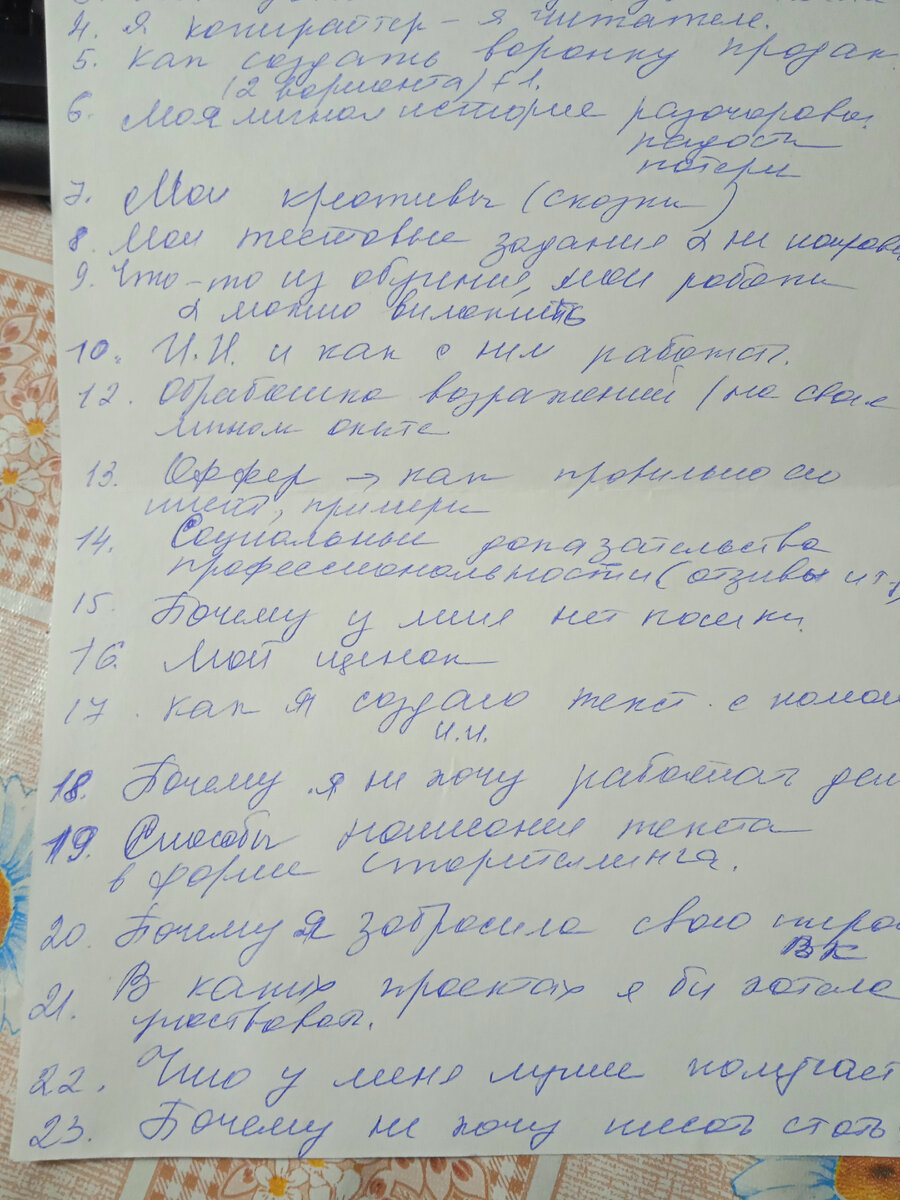 4. Я копирайтер - я читатель.
5. Как создать воронку продаж
(2 варианта) + 1.
6. Моя личная история разочаровы.
радости
потери
7. Мои креативы (сказки)
8. Мои тестовые задания и не направ
9. Что-то из обучения, мои работы
можно выложить
10. И.И. и как с ним работать.
12. Обработка возражений (на своем
личном опыте
13. Оффер → как правильно
примеры
14. Социальные доказательства
профессиональности (отзывы и т.
15. Почему у меня нет
16. Мой щенок
17. Как я создаю текст с помощ
И.И.
18. Почему я не хочу работать
19. Способы написания текста
в форме сторителлинга.
20. Почему Я забросила свою
ВК
21. В каких проектах я бы хотела
участвовать.
22. Что у меня лучше получает
23. Почему не хочу писать стать